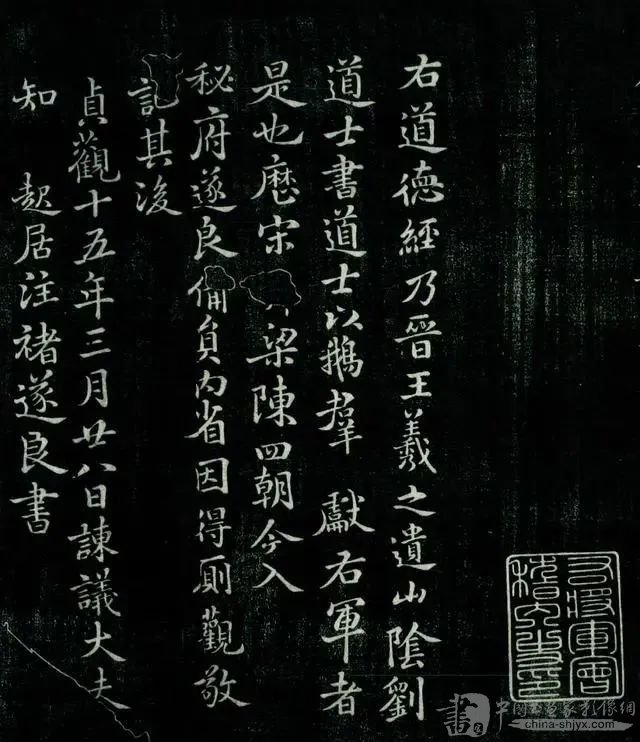 右道德經乃晉王羲之遺山陰劉
道士書道士以鵝羣 獻右軍者
是也歷宋 梁陳四朝今入
秘府遂良備員內省因得厠觀敬
記其後
貞觀十五年三月廿八日諫議大夫
知 起居注褚遂良書
右將軍會
稽內史印
書
中國書畫家影像網
china-shjyx.com